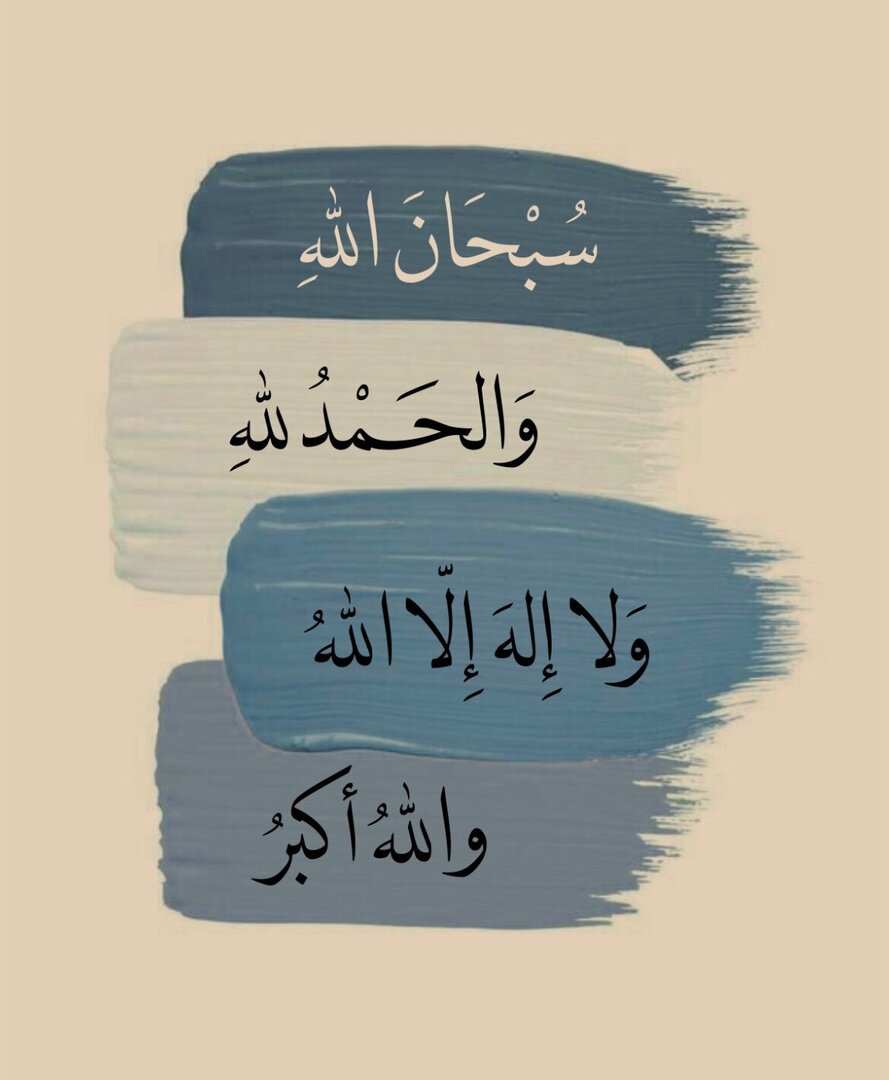 سُبْحَانَ اللهِ
وَالحَمْدُ للهِ
وَلا إِلهَ إِلّا اللهُ
واللهُ أكبرُ